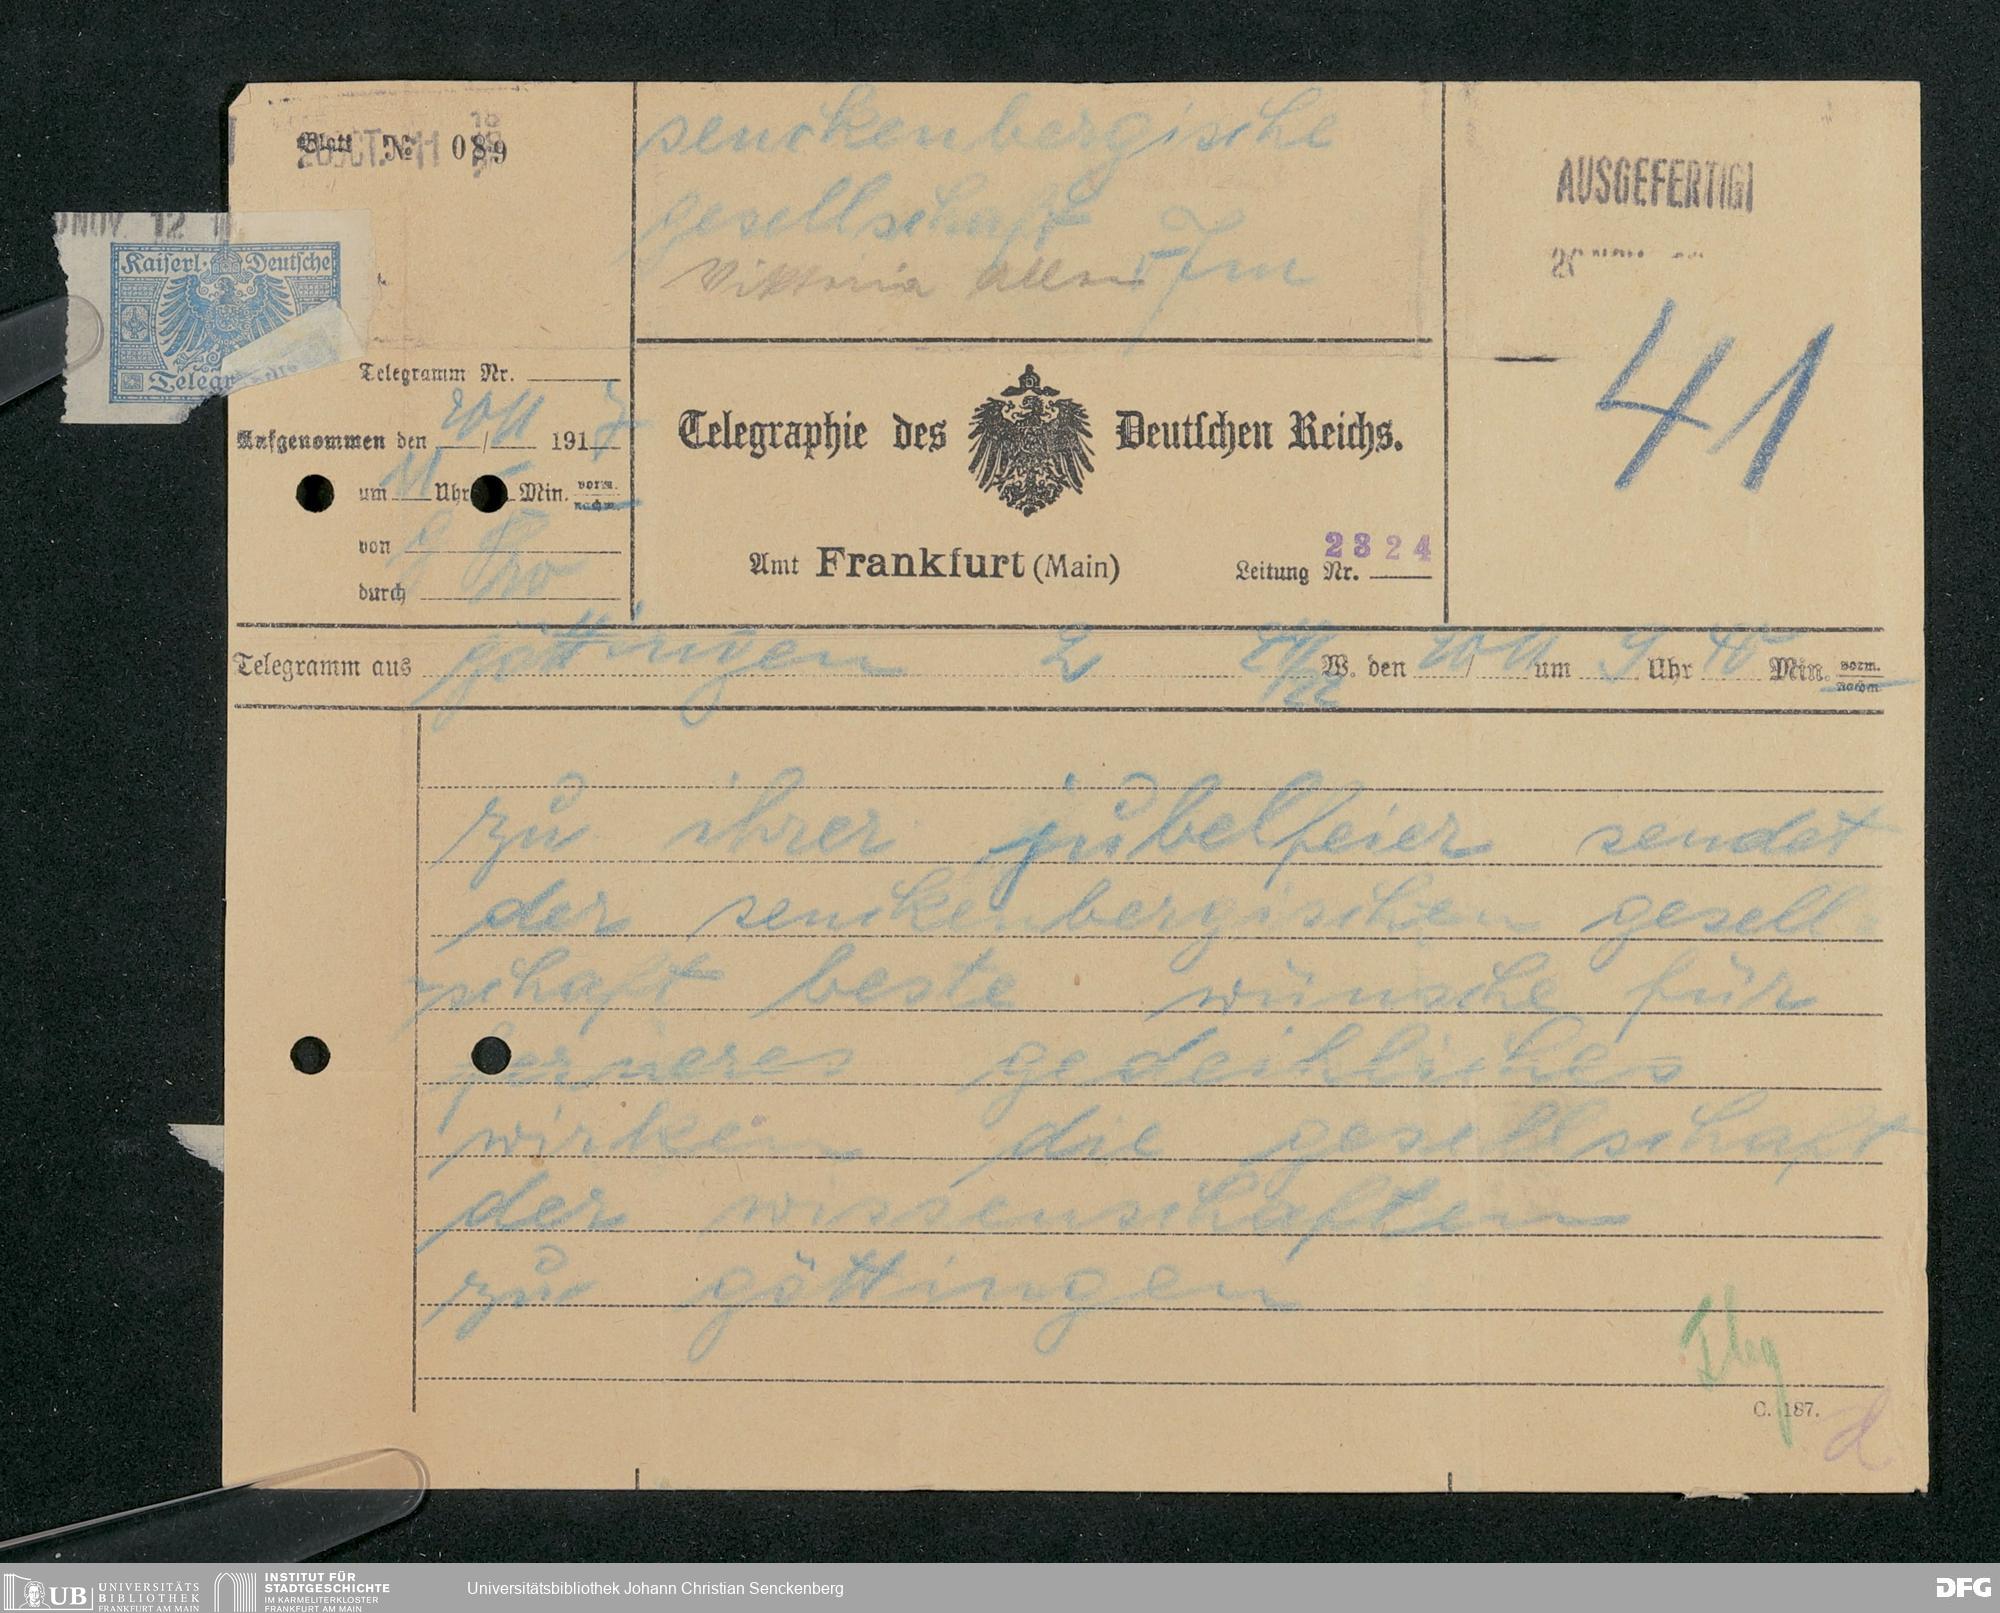 Blatt № 089
senckenbergische
gesellschaft
Viktoria Allee Ffm
AUSGEFERTIGT
NOV. 12
Kaiserl. Deutsche
Telegr
41
Telegramm Nr.
Aufgenommen den 20/11 191
um 11 Uhr Min. vorm. nachm.
von
durch
Telegraphie des Deutschen Reichs.
Amt Frankfurt (Main)
Leitung Nr. 2324
Telegramm aus göttingen 2 W. den 20/11 um 9 Uhr 40 Min. vorm. nachm.
zu ihrer jubelfeier sendet
der senckenbergischen gesell=
=schaft beste wünsche für
ferneres gedeihliches
wirken die gesellschaft
der wissenschaften
zu göttingen
C. 187.
UB UNIVERSITÄTS
BIBLIOTHEK
FRANKFURT AM MAIN
INSTITUT FÜR
STADTGESCHICHTE
IM KARMELITERKLOSTER
FRANKFURT AM MAIN
Universitätsbibliothek Johann Christian Senckenberg
DFG